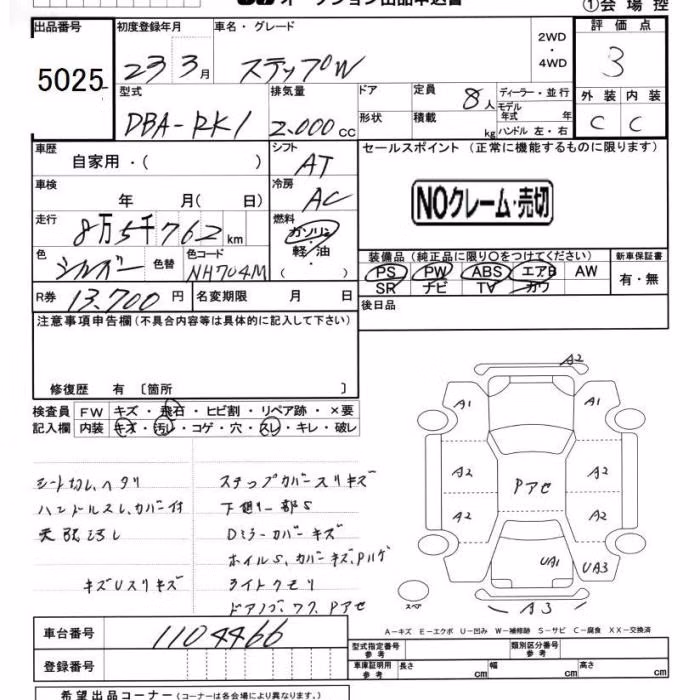 ①会場控
出品番号 5025
初度登録年月 23 3月
車名・グレード ステップW
2WD・4WD
評価点 3
型式 DBA-RK1
排気量 2,000cc
ドア
形状
定員 8人
積載 kg
ディーラー・並行
モデル年式 年
ハンドル 左・右
外装 C
内装 C
車歴 自家用・( )
シフト AT
セールスポイント(正常に機能するものに限ります)
NOクレーム・売切
車検 年 月( 日)
冷房 AC
走行 8万5千762km
燃料 ガソリン・軽油・( )
色 シルバー
色替
色コード NH704M
装備品(純正品に限り○をつけてください)
PS PW ABS エアB AW
SR ナビ TV カワ
新車保証書 有・無
R券 13,700円
名変期限 月 日
後日品
注意事項申告欄(不具合内容等は具体的に記入して下さい)
修復歴 有 〔箇所 〕
検査員記入欄
FW キズ・飛石・ヒビ割・リペア跡・×要
内装 キズ・汚レ・コゲ・穴・スレ・キレ・破レ
シート切レ、ヘタリ
ハンドルスレ、カバー付
天張汚レ
キズUスリキズ
ステップカバースリキズ
下廻リ一部S
Dミラーカバーキズ
ホイルS、カバーキズ、Pハゲ
ライトクモリ
ドアノブ、フタ、Pアセ
A2
A1 A1
A2 A2
Pアセ
A2 A2
UA1 UA3
A3
スペア
A-キズ E-エクボ U-凹み W-補修跡 S-サビ C-腐食 XX-交換済
車台番号 1104466
登録番号
型式指定番号 参考
類別区分番号 参考
車庫証明用 参考 長さ cm 幅 cm 高さ cm
希望出品コーナー(コーナーは各会場により異なります。)